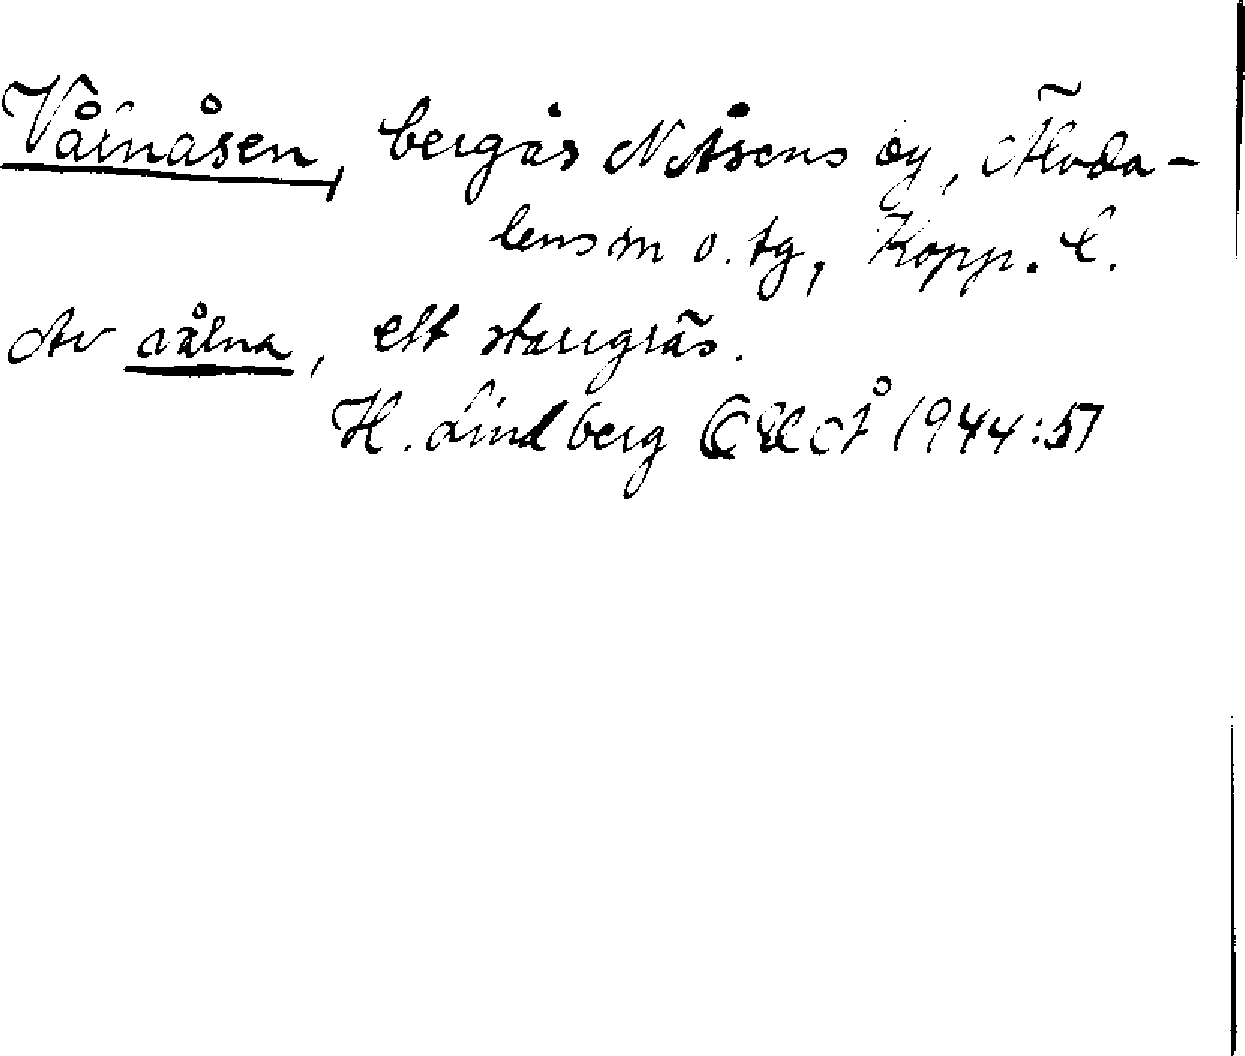 Vålnåsen, bergås N Åsens by, Älvda-
lens sn o. tg, Kopp. l.
Av vålna, ett starrgräs.
H. Lindberg 1944:57